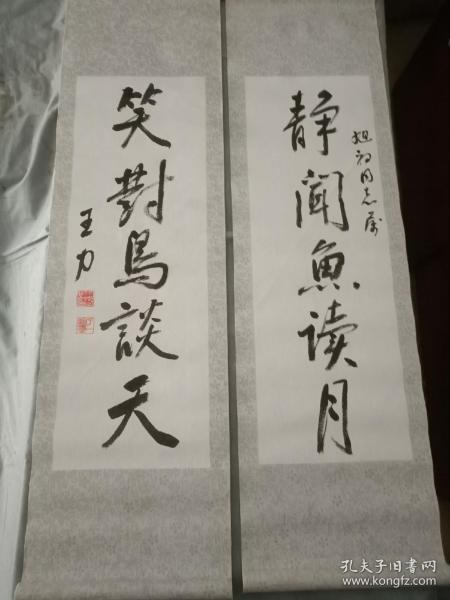 静闻鱼读月
旭初同志属
笑對鳥談天
王力
孔夫子旧书网
www.kongfz.com